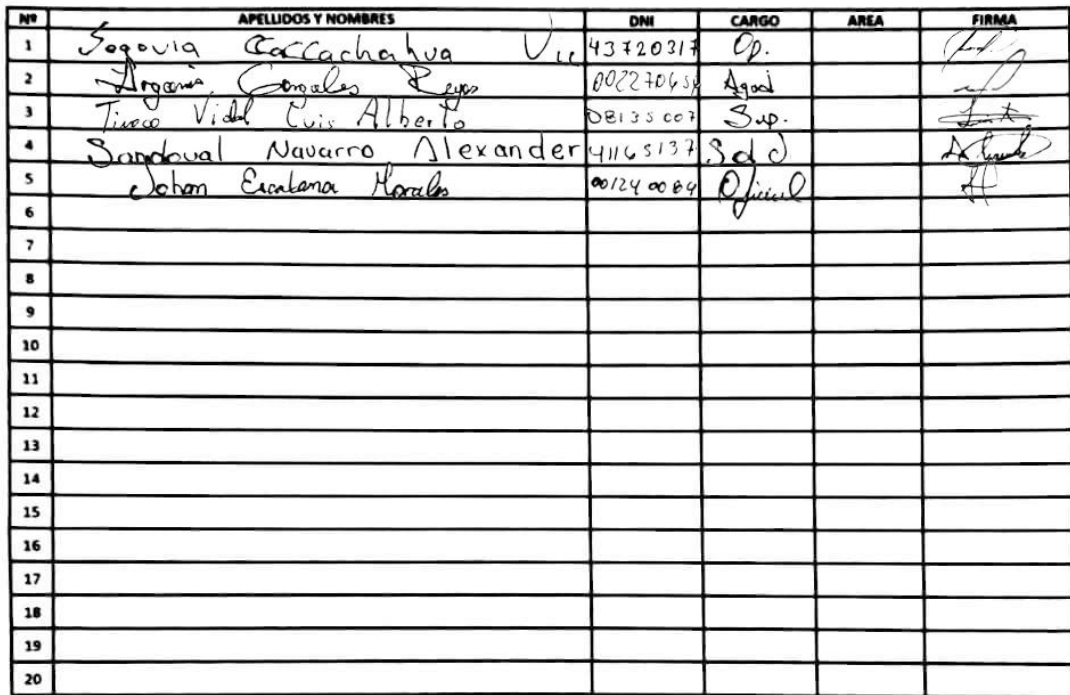 Nº APELLIDOS Y NOMBRES DNI CARGO AREA FIRMA
1 Segovia Ccaccachahua Vic 43720317 Op.
2 Gonzales Reyes
3 Tineco Vidal Luis Alberto 08135007 Sup.
4 Sandoval Navarro Alexander 41165137
5 Johan Escalona Morales 001240084 Oficial
6
7
8
9
10
11
12
13
14
15
16
17
18
19
20